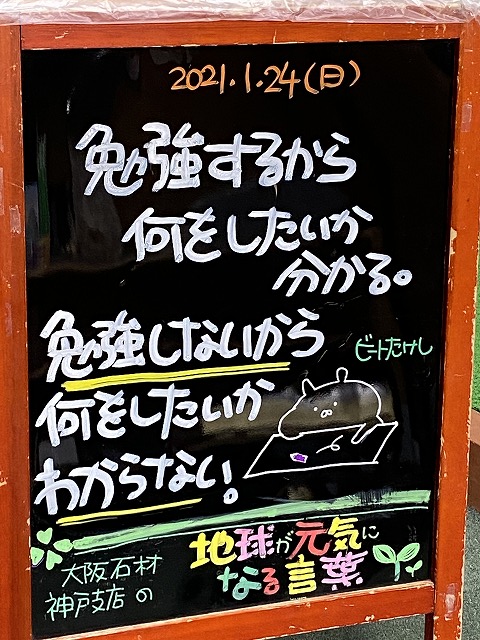 2021.1.24(日)
勉強するから
何をしたいか
分かる。
勉強しないから
ビートたけし
何をしたいか
わからない。
地球が元気に
なる言葉
大阪石材
神戸支店の